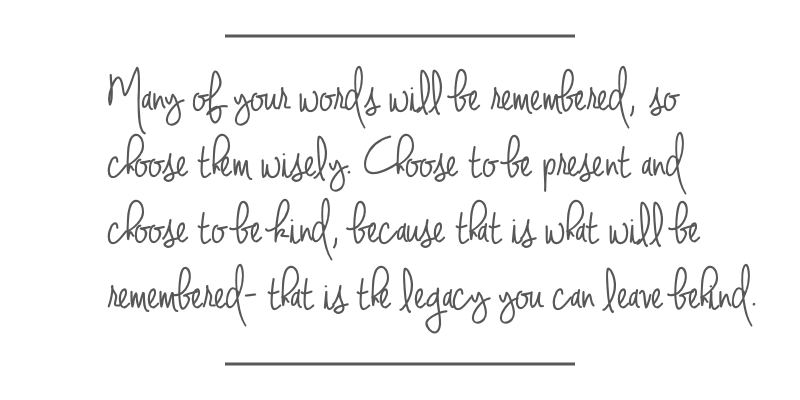 Many of your words will be remembered, so
choose them wisely. Choose to be present and
choose to be kind, because that is what will be
remembered- that is the legacy you can leave behind.